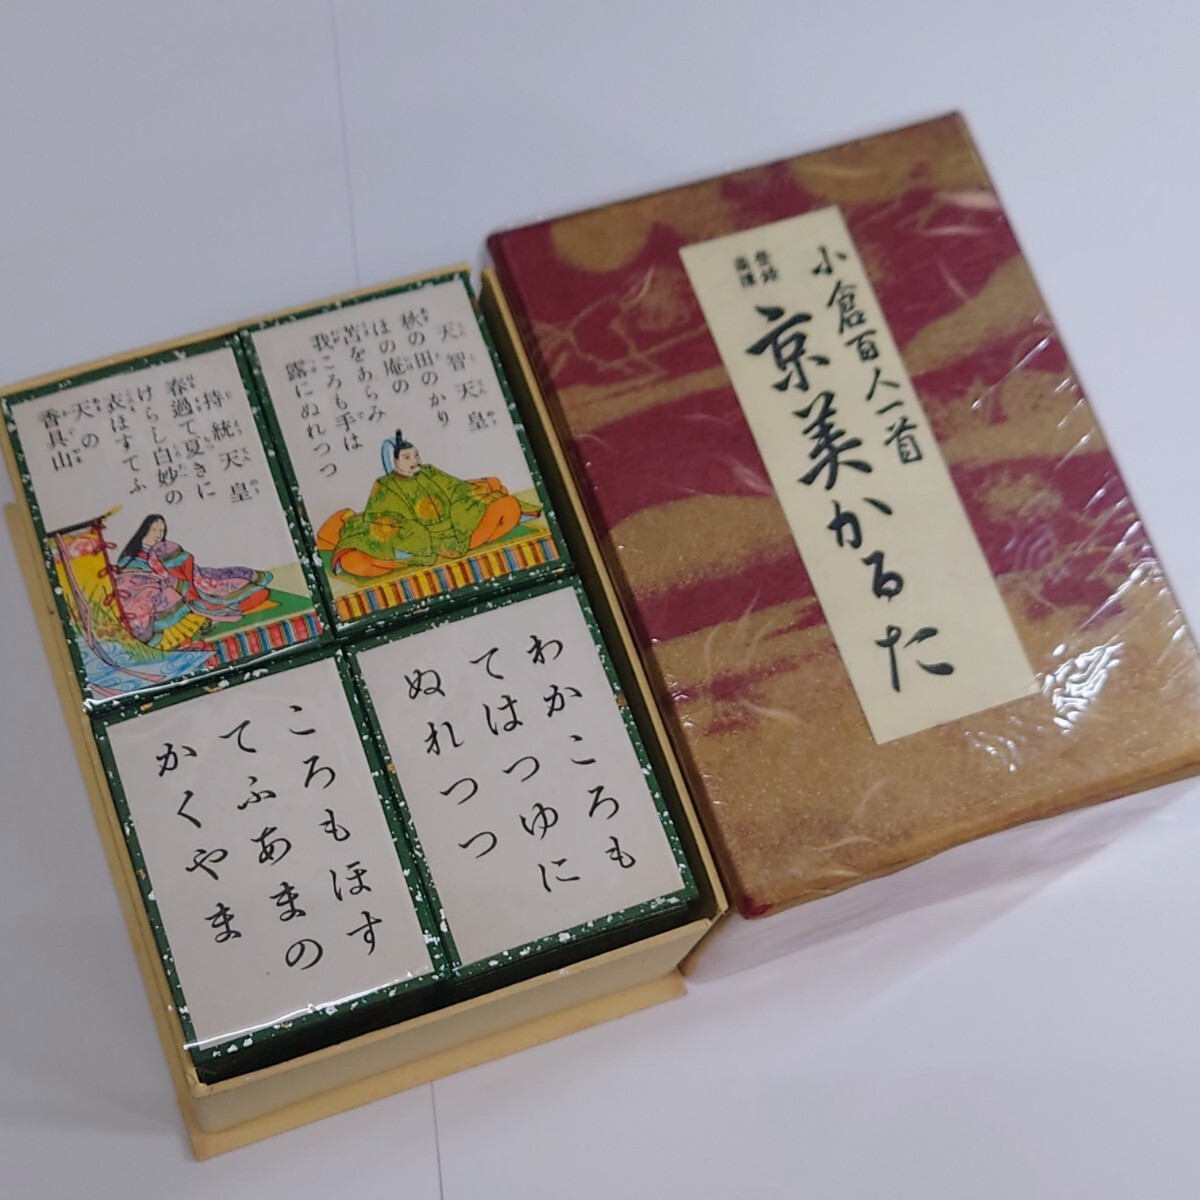 小倉百人一首
京美かるた
登録
商標
天智天皇
秋の田のかり
ほの庵の
苫をあらみ
我ころも手は
露にぬれつつ
持統天皇
春過て夏きに
けらし白妙の
衣ほすてふ
天の
香具山
わかころも
てはつゆに
ぬれつつ
ころもほす
てふあまの
かくやま